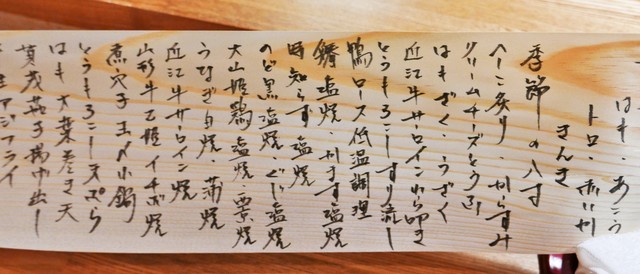 はも・あこう
トロ・赤いか
きんき
季節の八寸
へしこ炙り・からすみ
クリームチーズとうふ
はもざく・うざく
近江牛サーロイン叩き
とうもろこしすり流し
鴨ロース低温調理
鯖塩焼・かます塩焼
時知らず塩焼
のど黒塩焼・ぐじ塩焼
大山姫鶏塩焼
うなぎ白焼・蒲焼
近江牛サーロイン焼
山形牛乙姫イチボ焼
煮穴子玉〆小鍋
とうもろこし天ぷら
はも大葉巻き天
賀茂茄子揚げ出し
アジフライ